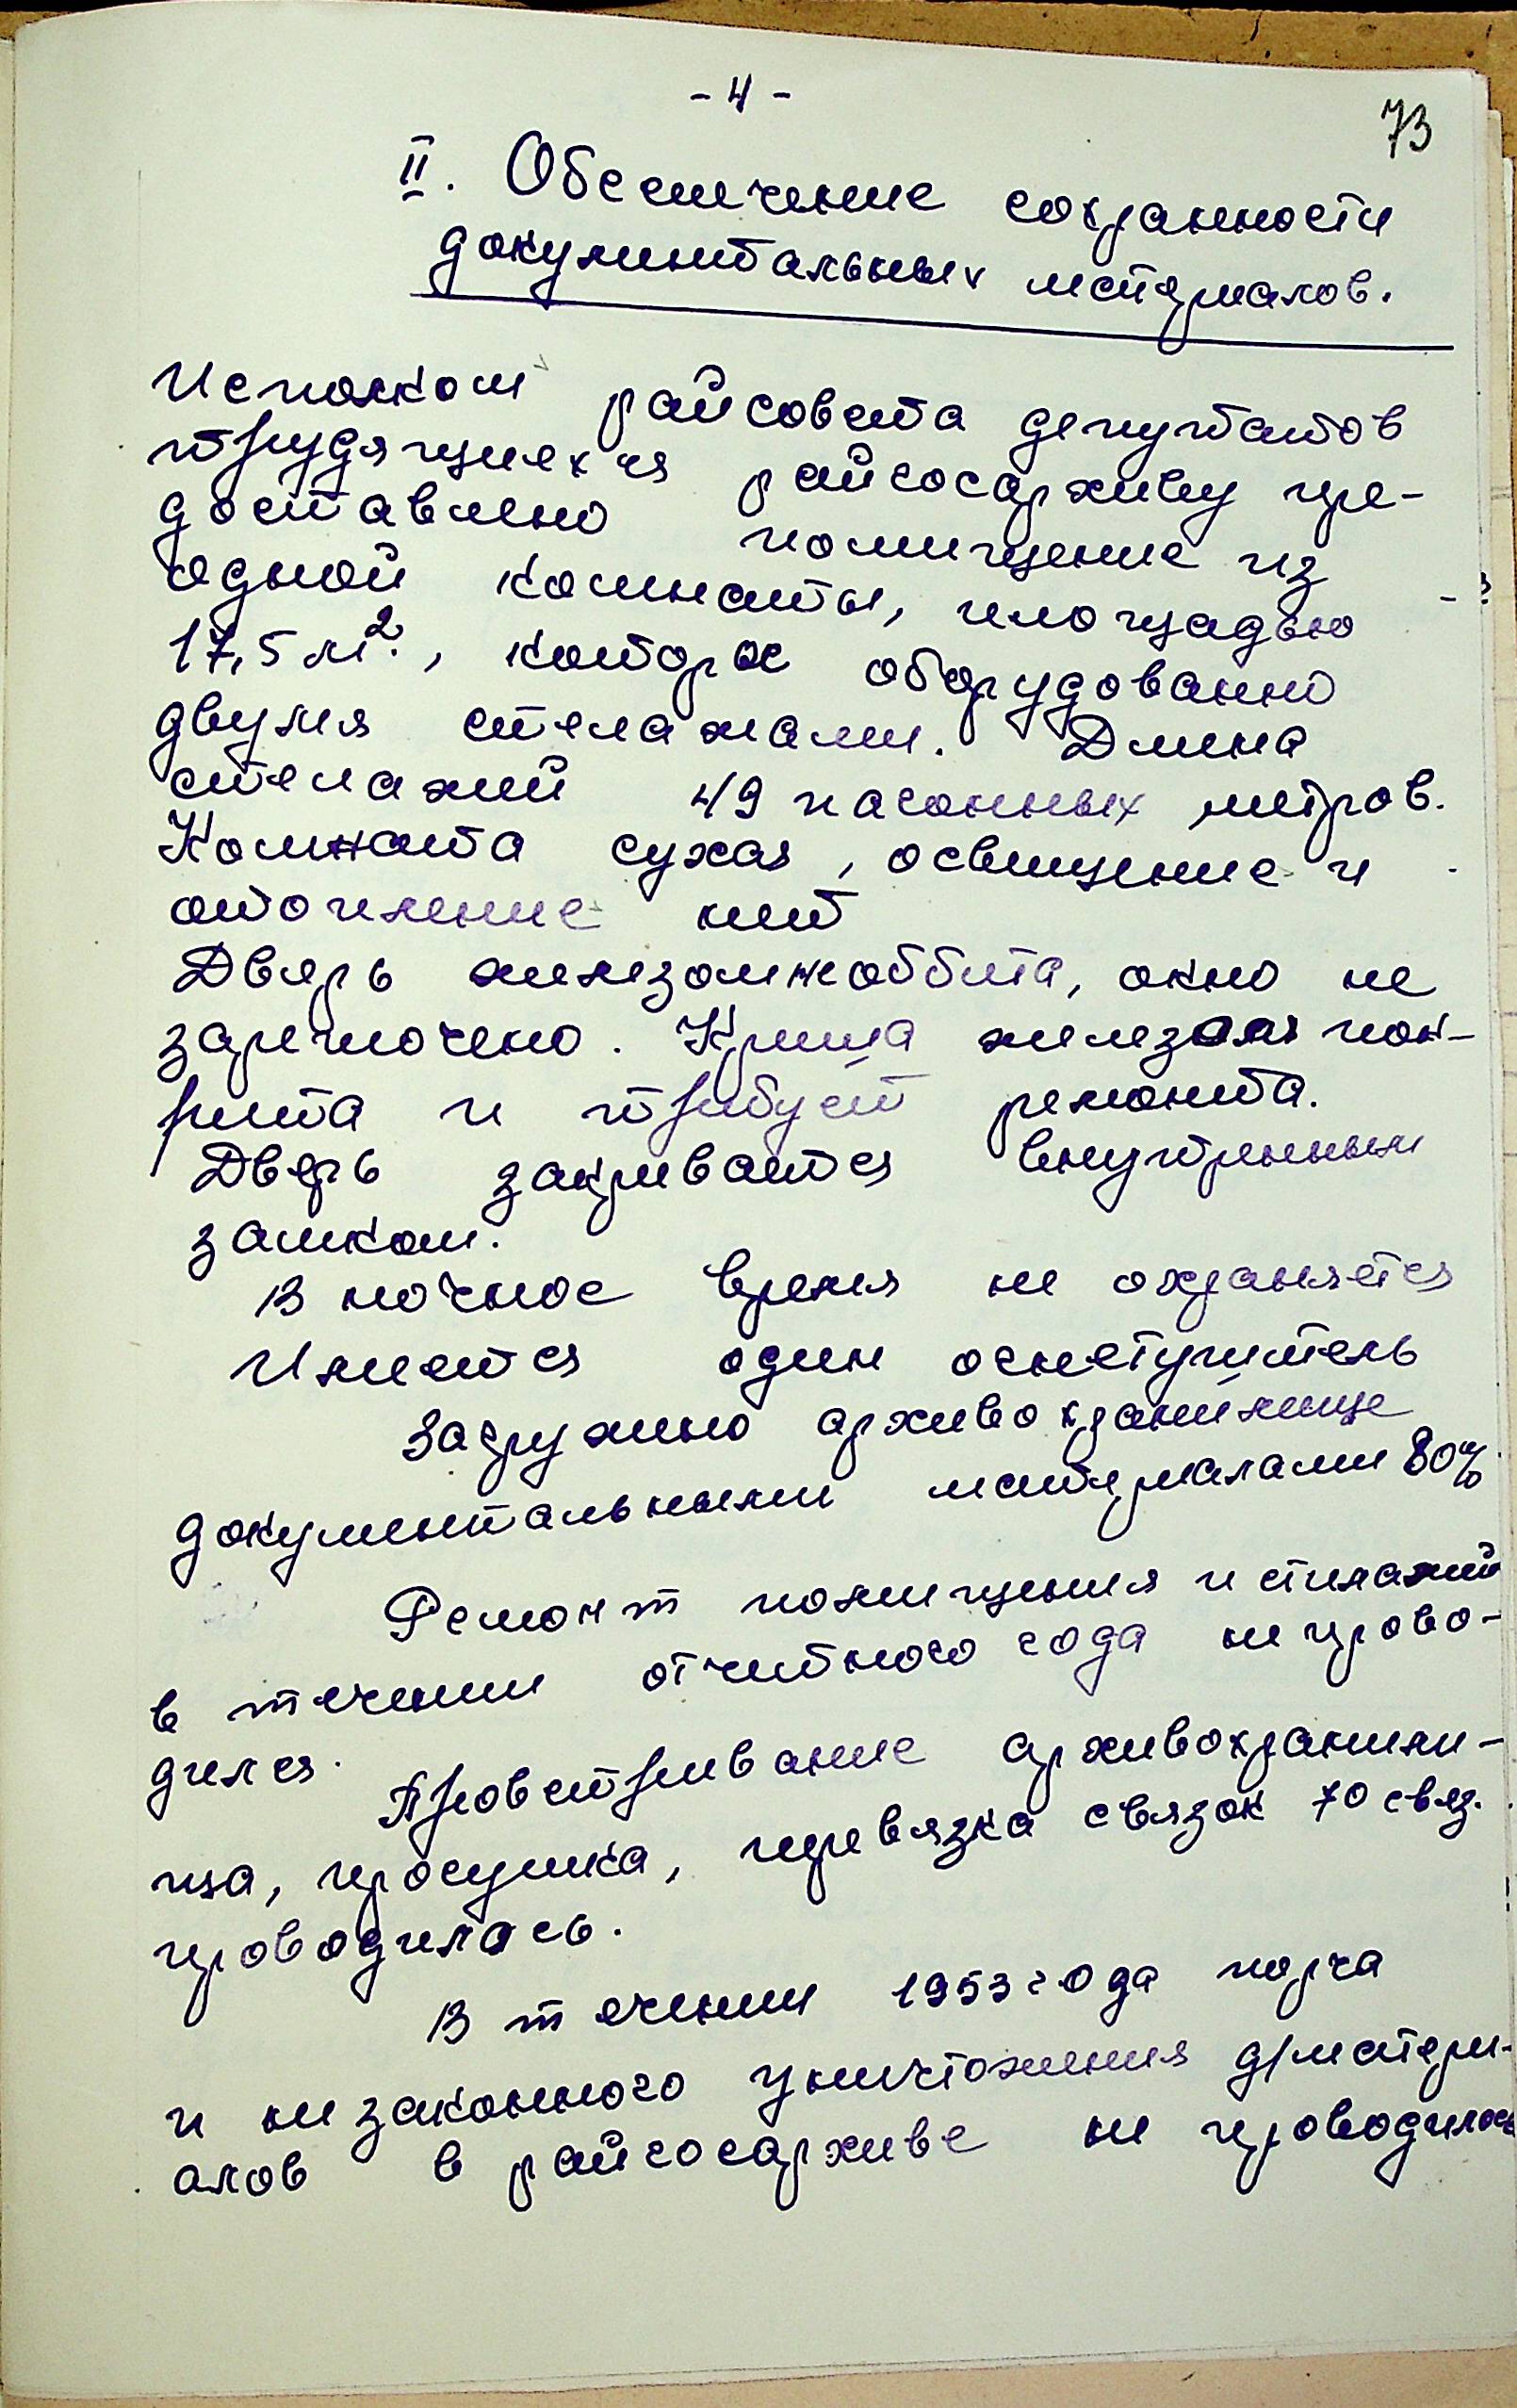 - 4 -
73
II. Обеспечение сохранности
документальных материалов.
Исполком райсовета депутатов
трудящихся райгосархиву пре-
доставлено помещение из
одной комнаты, площадью
17,5 м²., которое оборудованно
двумя стелажами. Длина
стелажей 49 пагонных метров.
Комната сухая, освещение и
отопление нет
Дверь железом необбита, окно не
зарешочено. Крыша железом пок-
рыта и требует ремонта.
Дверь закрывается внутренным
замком.
В ночное время не охраняется
Имеется один огнетушитель
Загружено архивохранилище
документальными материалами 80%
Ремонт помещения и стелажей
в течении отчетного года не прово-
дился.
Проветривание архивохранили-
ща, просушка, перевязка связок 70 связ.
проводилась.
В течении 1953 года порча
и незаконного уничтожения д/матери-
алов в райгосархиве не проводилось